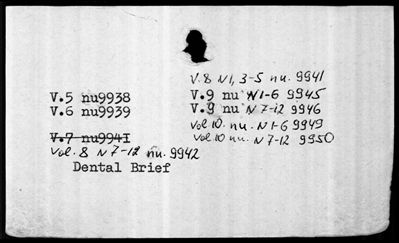 V.5 nu9938
V.6 nu9939
V.7 nu9941
Vol. 8 N 7-12 nu. 9942
Dental Brief
V. 8 N1, 3-5 nu. 9941
V.9 nu N1-6 9945
V.9 nu N7-12 9946
Vol 10. nu. N1-6 9949
Vol 10 nu. N 7-12 9950